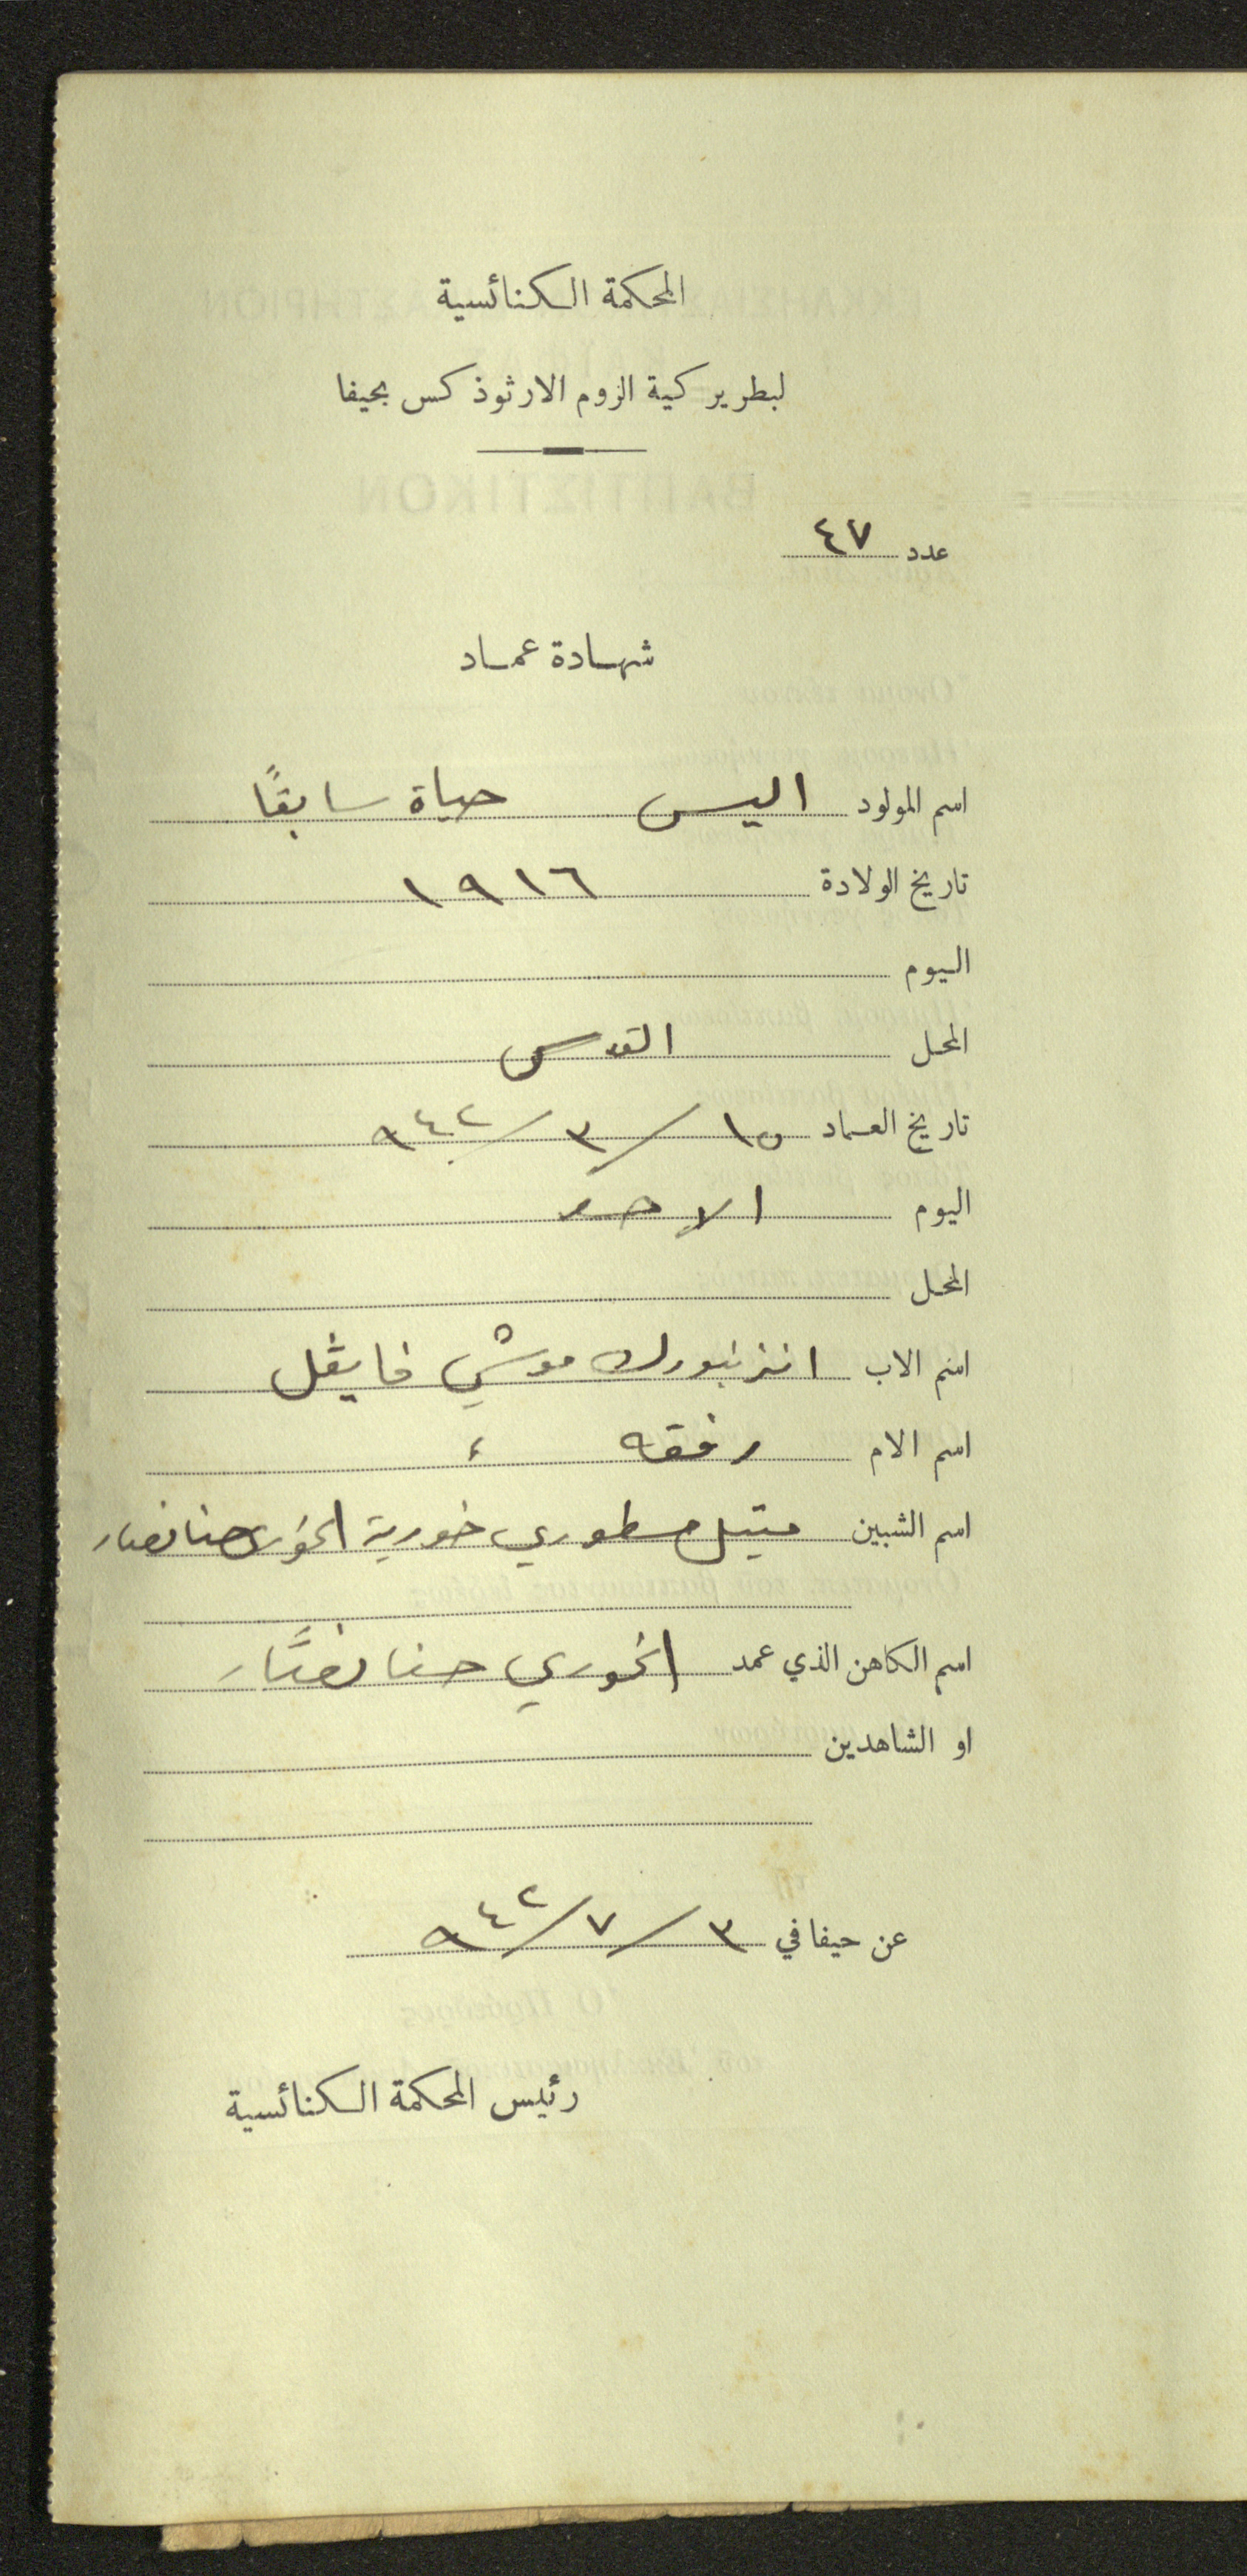 المحكمة الكنائسية
لبطريركية الروم الارثوذكس بحيفا
عدد ٤٧
شهادة عماد
اسم المولود اليس حياة سابقاً
تاريخ الولادة ١٩١٦
اليوم
المحل القدس
تاريخ العماد ١٥/٣/٩٤٢
اليوم الاحد
المحل
اسم الاب موشي فايڤل
اسم الام رفقه ،
اسم الشبين خورية الخوري حنا نصار
اسم الكاهن الذي عمد الخوري حنا نصَّار
او الشاهدين
عن حيفا في ٣/٧/٩٤٢
رئيس المحكمة الكنائسية